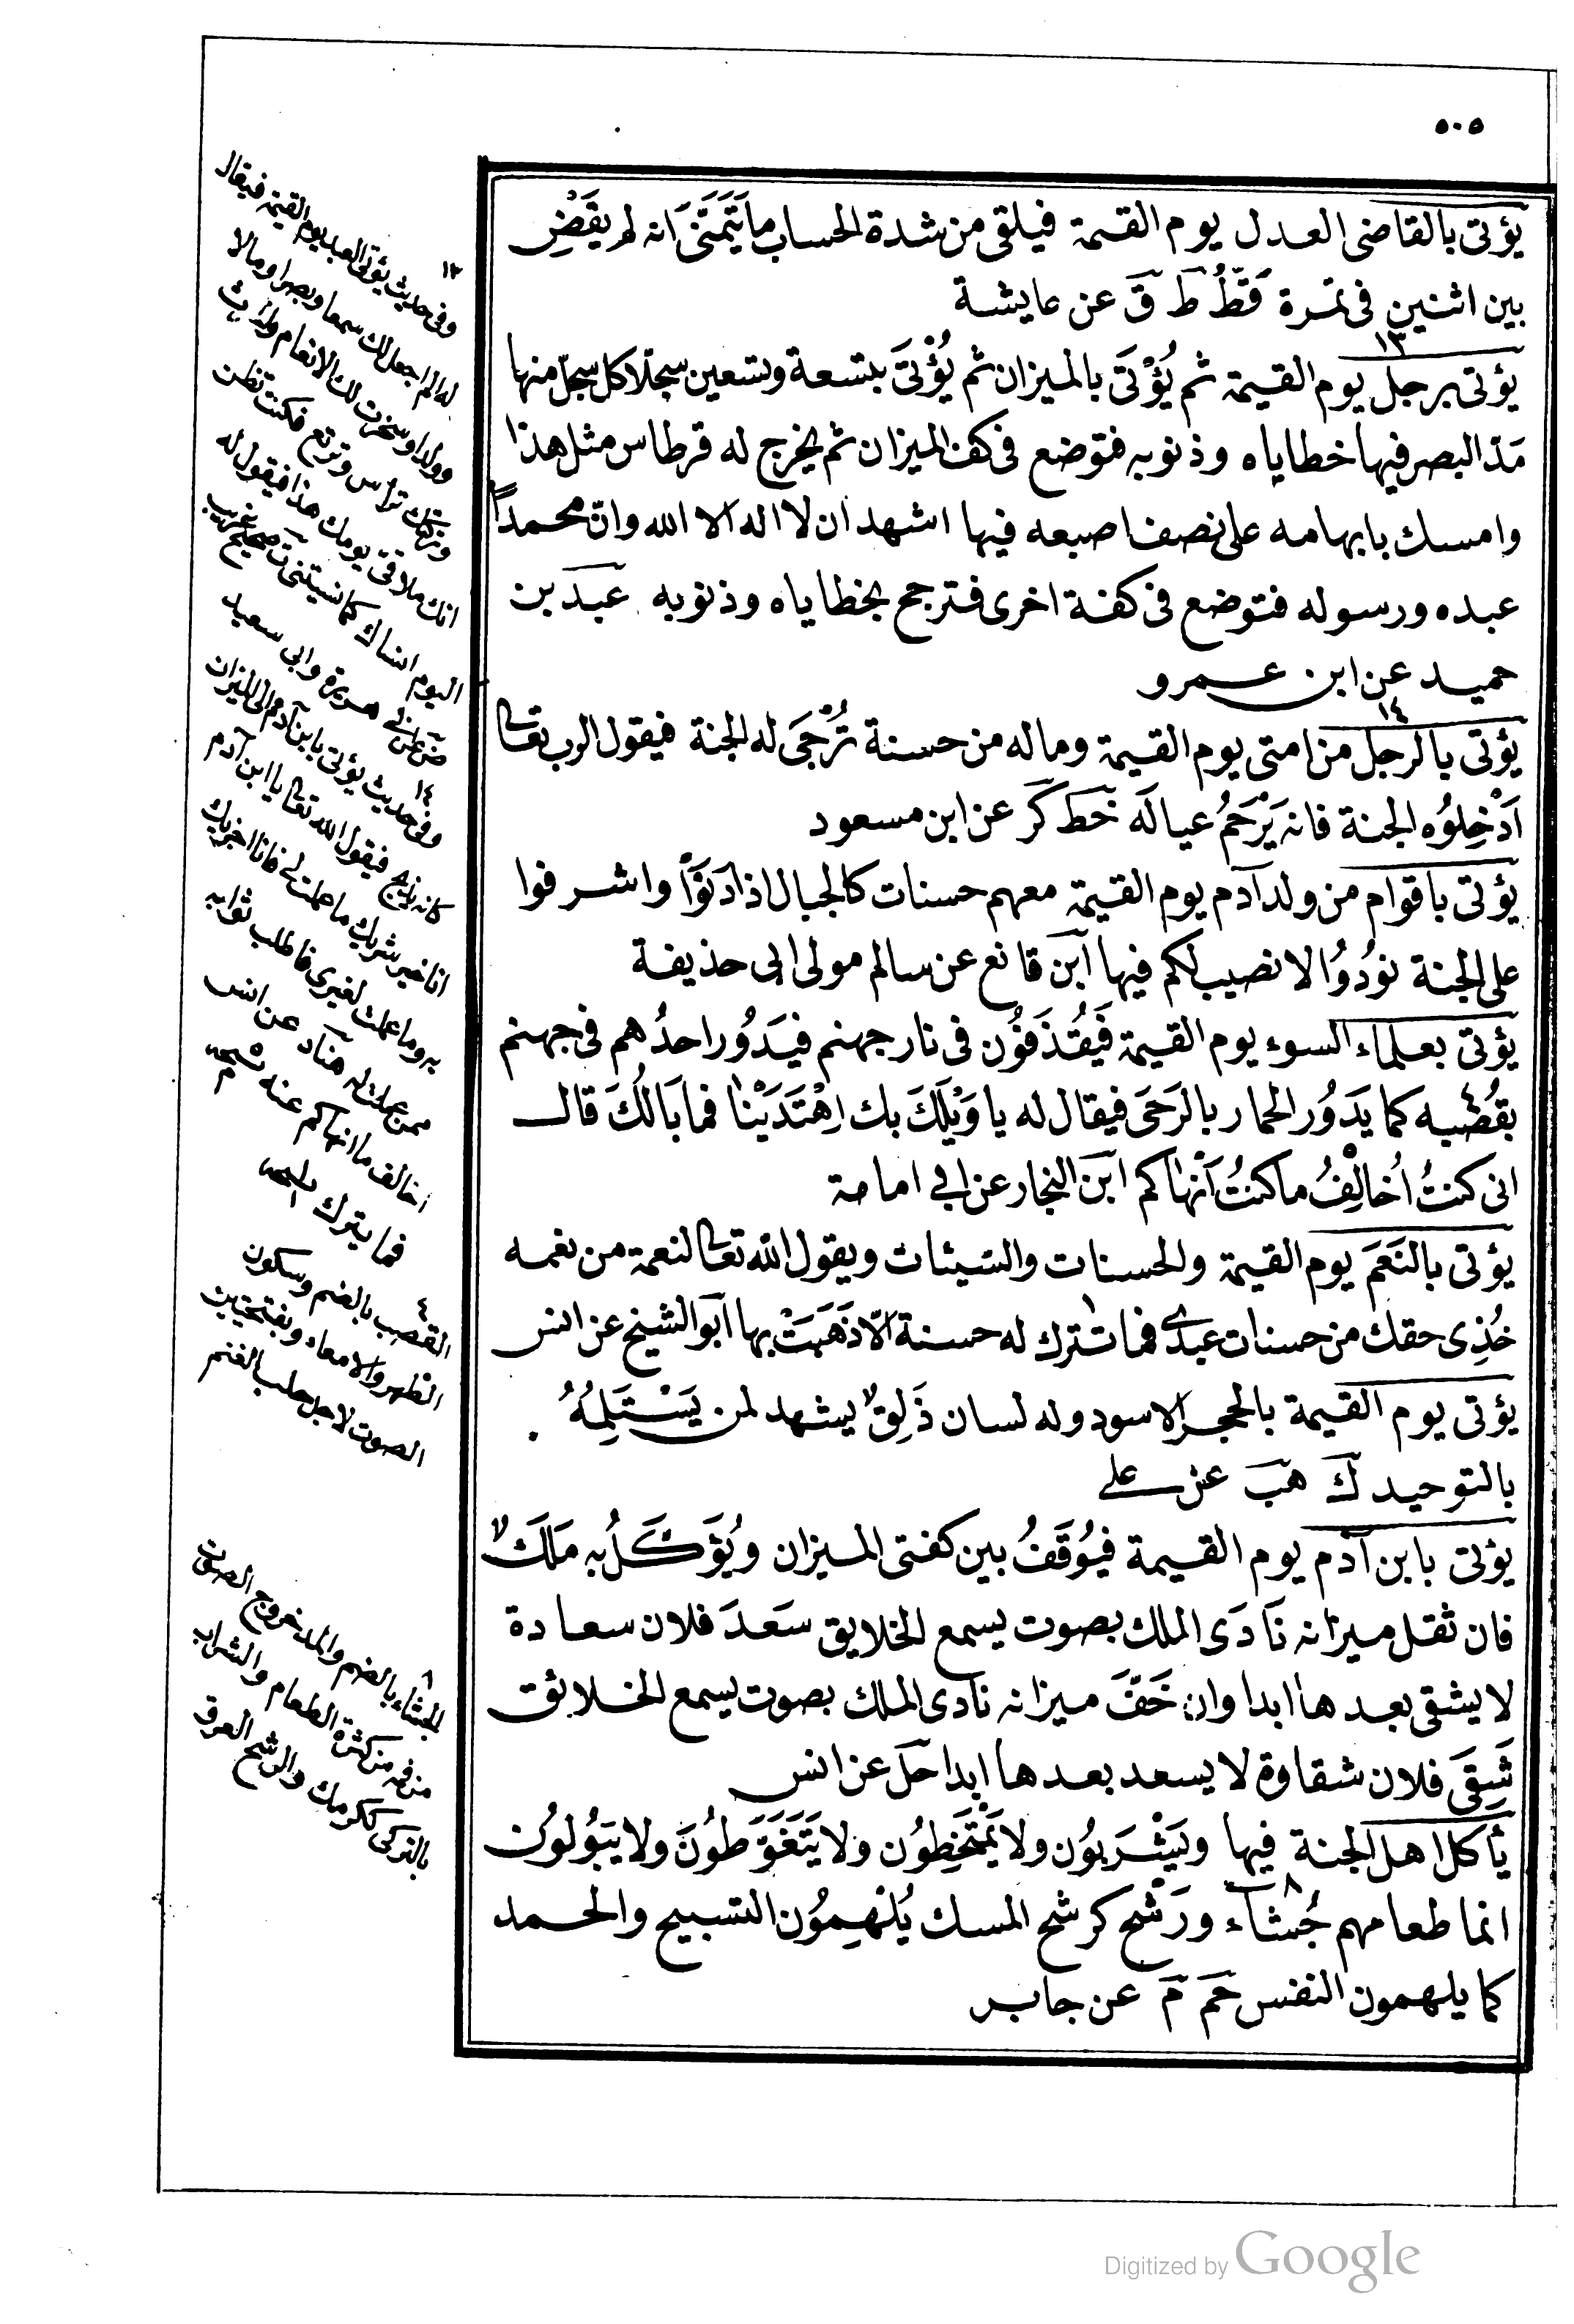 ٥٠٥
يؤتى بالقاضى العدل يوم القيمة فيلقى من شدة الحساب ما يَتَمَنَّى انه لم يَقْضِ
بين اثنين فى تمرة قَطُّ ط ق عن عايشة
١٣
يؤتى برجل يوم القيمة ثم يُؤْتَى بالميزان ثم يُؤْتَى بتسعة وتسعين سجلّا كل سجلّ منها
مَدّ البصر فيها خطاياه وذنوبه فتوضع فى كفة الميزان ثم يخرج له قرطاس مثل هذا
وامسك بابهامه على نصف اصبعه فيها اشهد ان لا اله الا الله وانّ محمداً
عبده ورسوله فتوضع فى كفة اخرى فترجح بخطاياه وذنوبه عبد بن
حميد عن ابن عمرو
١٤
يؤتى بالرجل من امتى يوم القيمة وماله من حسنة تُرْجَى له الجنة فيقول الرب تعالى
اَدْخِلُوْه الجنة فانه يَرْحَمُ عيالَه خط كر عن ابن مسعود
يؤتى باقوام من ولد آدم يوم القيمة معهم حسنات كالجبال اذا دَنَوْا واشرفوا
على الجنة نُودُوْا لا نصيب لكم فيها ابن قانع عن سالم مولى ابى حذيفة
يؤتى بعلماء السوء يوم القيمة فَيُقْذَفُوْن فى نار جهنم فيَدُوْر احدُهم فى جهنم
بقُصْبِه ٤ كما يَدَوُر الحمار بالرَحَى فيقال له يا وَيْلَكَ بك اِهْتَدَيْنَا فما بَالُكَ قال
انى كنتُ اُخَالِفُ ما كنتُ اَنْهاكم ابن النجار عن ابى امامة
يؤتى بالنَعَم يوم القيمة والحسنات والسّيئات ويقول الله تعالى لنعمة من نعمه
خُذِى حقك من حسنات عبدى فما تترك له حسنة الّا ذَهَبَتْ بها ابو الشيخ عن انس
يؤتى يوم القيمة بالحجر الاسود وله لسان ذَلِقٌ يشهد لمن يَسْتَلِمُهُ
بالتوحيد ك هب عن على
يؤتى بابن آدم يوم القيمة فيُوْقَفُ بين كفتى الميزان ويُوَكَّلُ به مَلَكٌ
فان ثقل ميزانه نَادَى الملك بصوت يسمع الخلايق سَعَدَ فلان سعادة
لا يشقى بعدها ابدا وان خَفَّ ميزانه نادى الملك بصوت يسمع الخلائق
شَقِىَ فلان شقاوة لا يسعد بعدها ابدا حل عن انس
يأكل اهل الجنة فيها ويَشْرَبوُن ولا يَمْتَخِطوُن ولا يَتَغَوَّطوُنَ ولا يَبُوْلوُن
انما طعامهم جُشَآء ٨ ورَشْح كرشح المسك يُلْهِموُن التسبيح والحمد
كما يلهمون النفس حم م عن جابر
١٣
وفى حديث يؤتى العبد يوم القيمة فيقال
له الم اجعل لك سمعا وبصرا ومالا
وولدا وسخرت لك الانعام والحرث
وتركتك ترأس وتربع فكنت تظن
انك ملاقى يومك هذا فيقول له
اليوم انساك كما نسيتنى ت صحيح غريب
عن ابى هريرة وابى سعيد
١٤
وفى حديث يؤتى بابن آدم الى الميزان
كانه بذج فيقول الله تعالى يا ابن آدم
انا خير شريك ما عملت لى فانا اجزيك
به وما عملت لغيرى فاطلب ثوابه
ممن عملت له هناد عن انس
اخالف ما انهاكم عنه نسخه م
فما يترك نسخه
٤
القصب بالضم وسكون
الظهر والامعاء وبفتحتين
الصوت لاجل حلب الغنم
٨
الجشاء بالضم والمد خروج الصوت
من فمه من كثرة الطعام والشراب
بالتركى ككرمك والرشح العرق
Digitized by Google